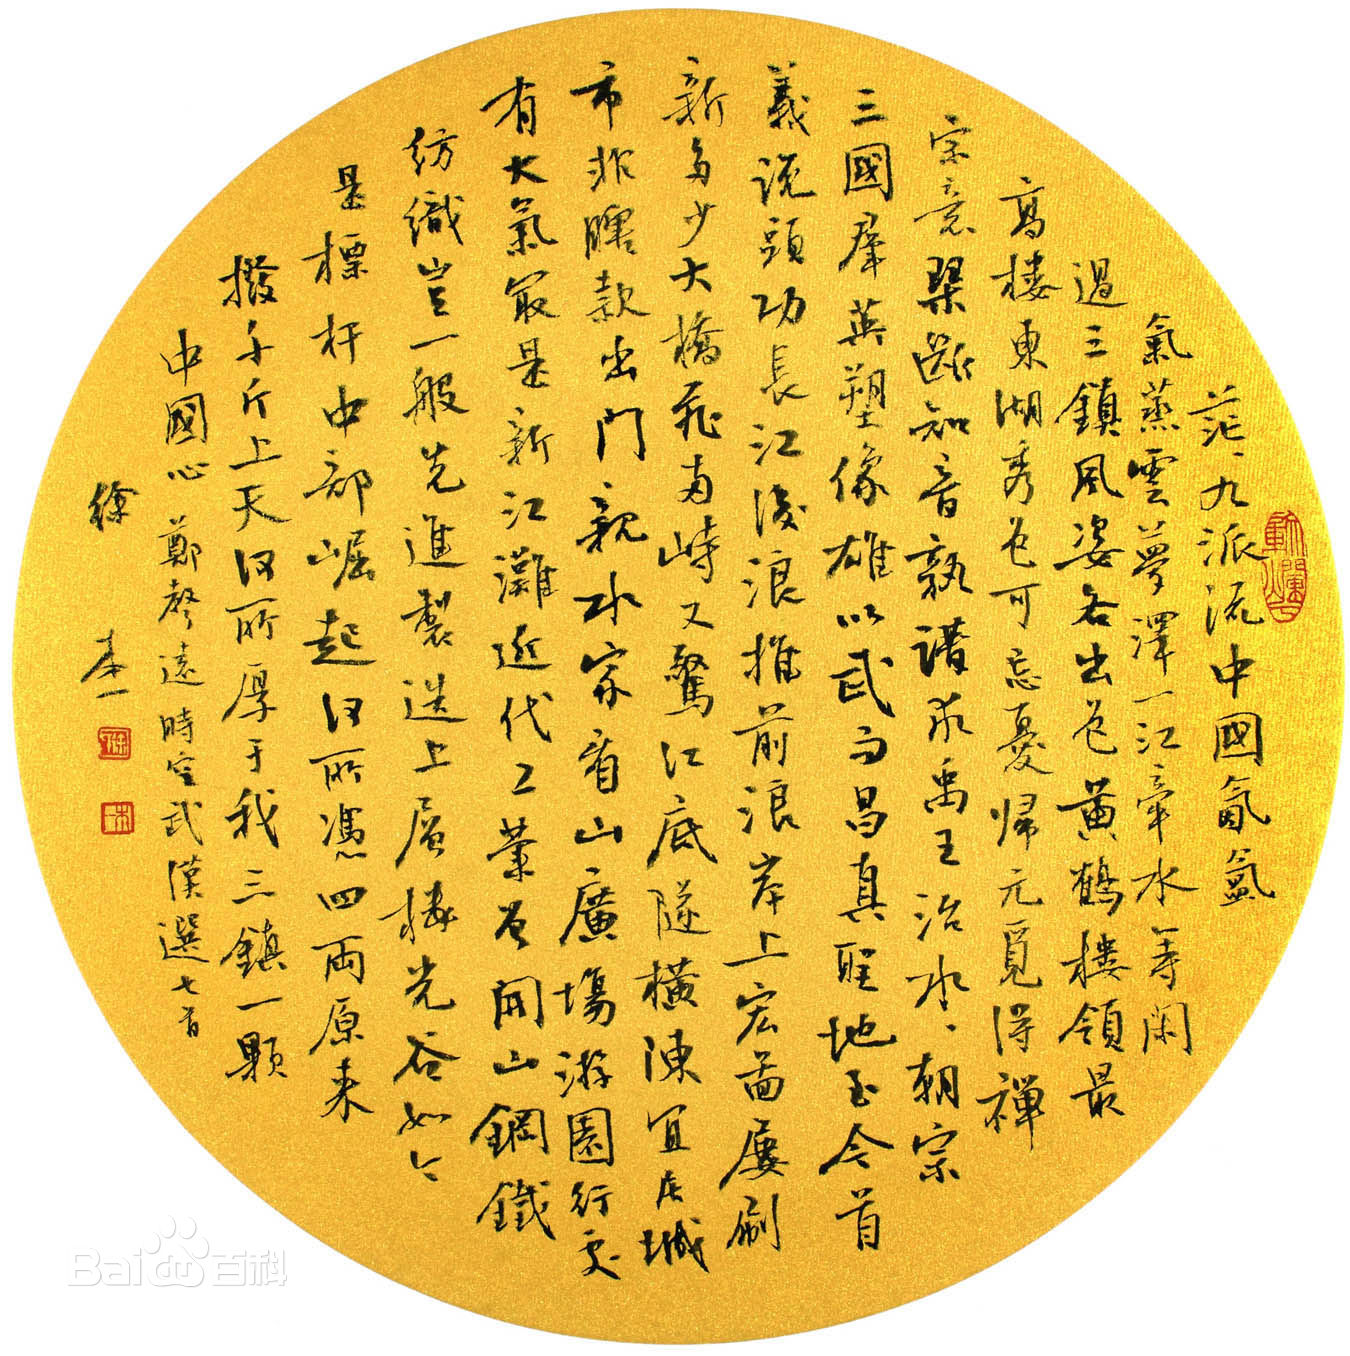 茫、九派流中國氤氳
氣蒸雲夢澤一江牽水等闲
過三鎮風姿各出色黄鶴楼領最
高楼東湖秀色可忘憂归元覓得禅
宗意琹斷知音孰谱成禹王治水、朝宗
三國羣英塑像雄以武而昌真聖地至今首
義说頭功長江後浪推前浪岸上宏啚屢刷
新多少大橋飛两峙又驚江底隧横陳宜居城
市非賭款出门親水家看山廣場游園行处
有大氣最是新江灘近代工業首開山鋼鐵
纺織豈一般先進製造上层楼光谷如今
是標杆中部崛起何所憑四両原来
撥千斤上天何所厚于我三鎮一顆
中國心 鄭聲遠時空武漢選七首
徐本一
Bai百科